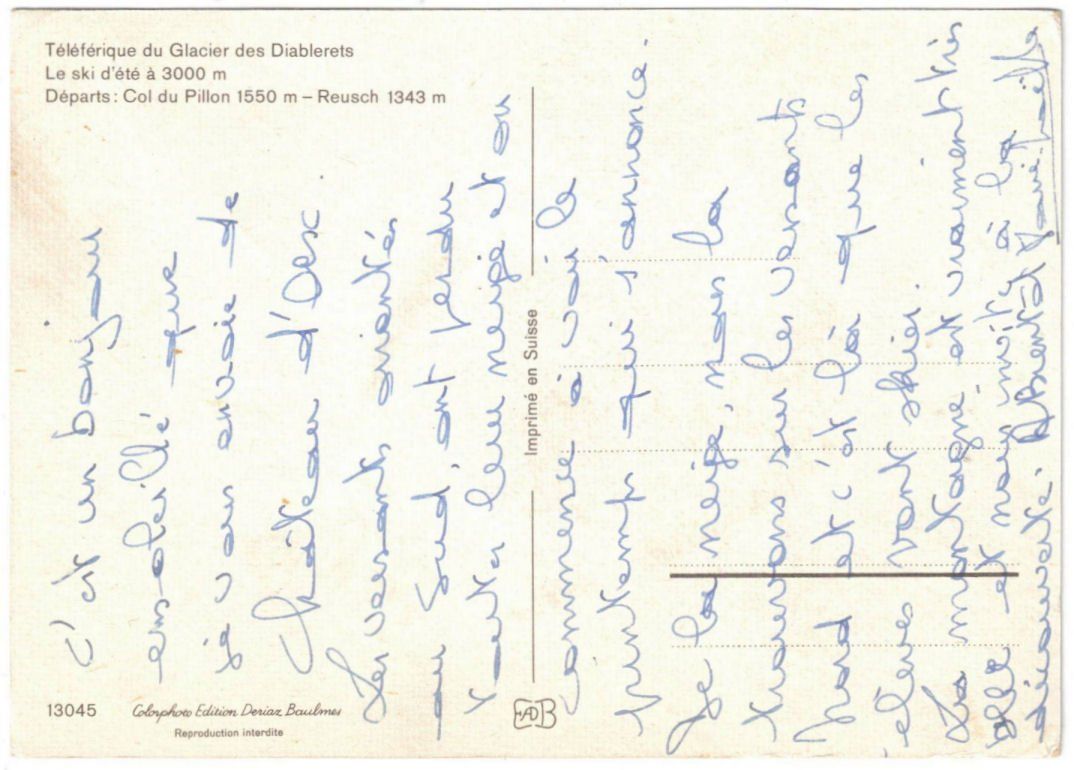 Téléférique du Glacier des Diablerets
Le ski d'été à 3000 m
Départs: Col du Pillon 1550 m – Reusch 1343 m
C'est un bonjour
ensoleillé que
je vous envoie de
Château d'Oex.
Les versants orientés
au Sud, ont perdu
toute leur neige et on
commence à voir le
printemps qui s'annonce.
Je la neige, non la
trouvons sur les versants
nord et c'est là que les
élèves vont skier.
La montagne est vraiment très
belle et nous invite à la
découverte. A Bientôt
Imprimé en Suisse
13045
Colorphoto Edition Deriaz Baulmes
Reproduction interdite